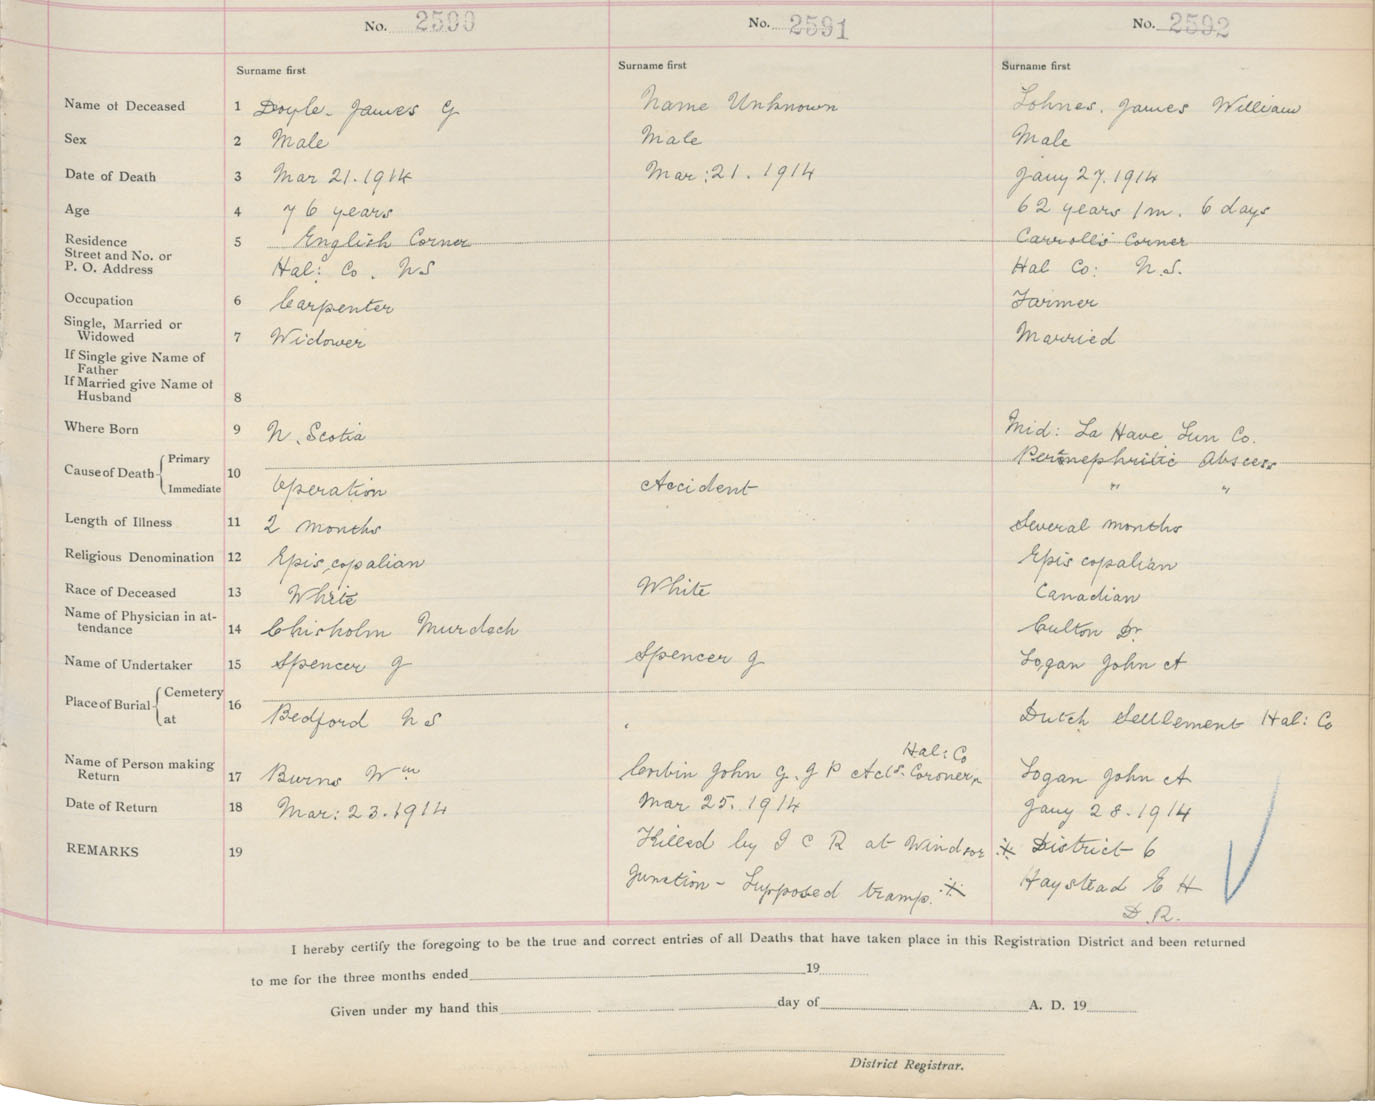 No. 2590 No. 2591 No. 2592
Surname first Surname first Surname first
Name of Deceased 1 Doyle - James G Name Unknown Lohnes. James William
Sex 2 Male Male Male
Date of Death 3 Mar 21. 1914 Mar: 21. 1914 Jany 27. 1914
Age 4 76 years 62 years 1 m. 6 days
Residence 5 English Corner Carroll's Corner
Street and No. or
P. O. Address Hal: Co. N S Hal Co: N.S.
Occupation 6 Carpenter Farmer
Single, Married or
Widowed 7 Widower Married
If Single give Name of
Father
If Married give Name of
Husband 8
Where Born 9 N. Scotia Mid: La Have Lun Co.
Cause of Death Primary 10 Perinephritic Abscess
Immediate Operation Accident " "
Length of Illness 11 2 months Several months
Religious Denomination 12 Episcopalian Episcopalian
Race of Deceased 13 White White Canadian
Name of Physician in at-
tendance 14 Chisholm Murdoch Culton Dr
Name of Undertaker 15 Spencer J Spencer J Logan John A
Place of Burial Cemetery 16
at Bedford N S Dutch Settlement Hal: Co
Hal: Co
Name of Person making
Return 17 Burns Wm Corbin John G. J P Actg. Coroner Logan John A
Date of Return 18 Mar: 23. 1914 Mar 25. 1914 Jany 28. 1914
REMARKS 19 Killed by I C R at Windsor District 6
Junction - Supposed tramp. Haystead E H
D. R.
I hereby certify the foregoing to be the true and correct entries of all Deaths that have taken place in this Registration District and been returned
to me for the three months ended 19
Given under my hand this day of A. D. 19
District Registrar.